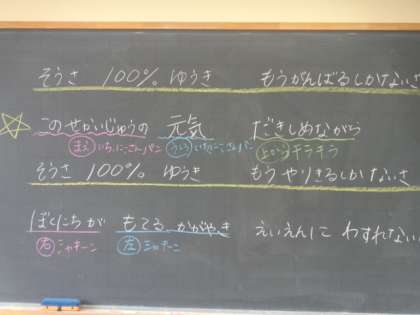 そうさ 100% ゆうき もうがんばるしかないさ
このせかいじゅうの 元気 だきしめながら
まえ いち、にー、さんパン うしろ いち、にー、さんパン 上から キラキラ
そうさ 100% ゆうき もうやりきるしかないさ
ぼくたちが もてる かがやき えいえんに わすれない
右 シャキーン 左 シャキーン